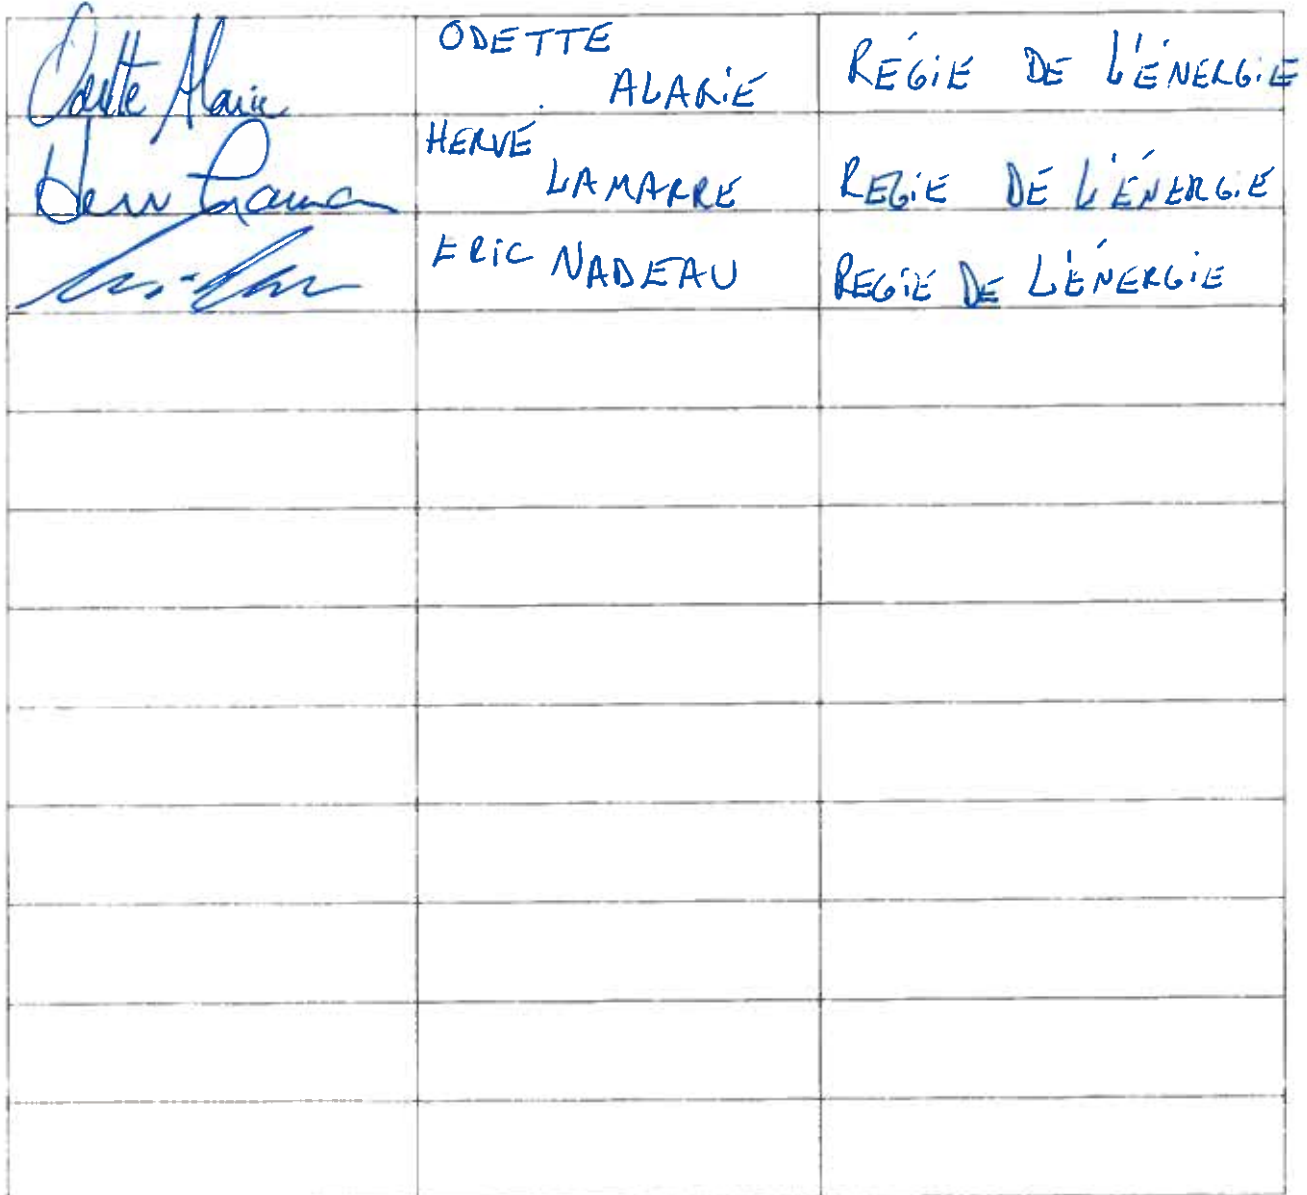 Odette Alarie
ODETTE
ALARIE
RÉGIE DE L'ÉNERGIE
HERVÉ
LAMARRE
REGIE DE L'ÉNERGIE
ERIC NADEAU
REGIE DE L'ÉNERGIE